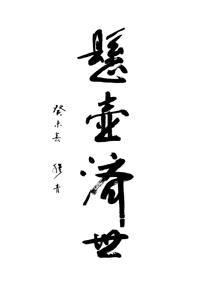 懸壺濟世
癸未春 穆青